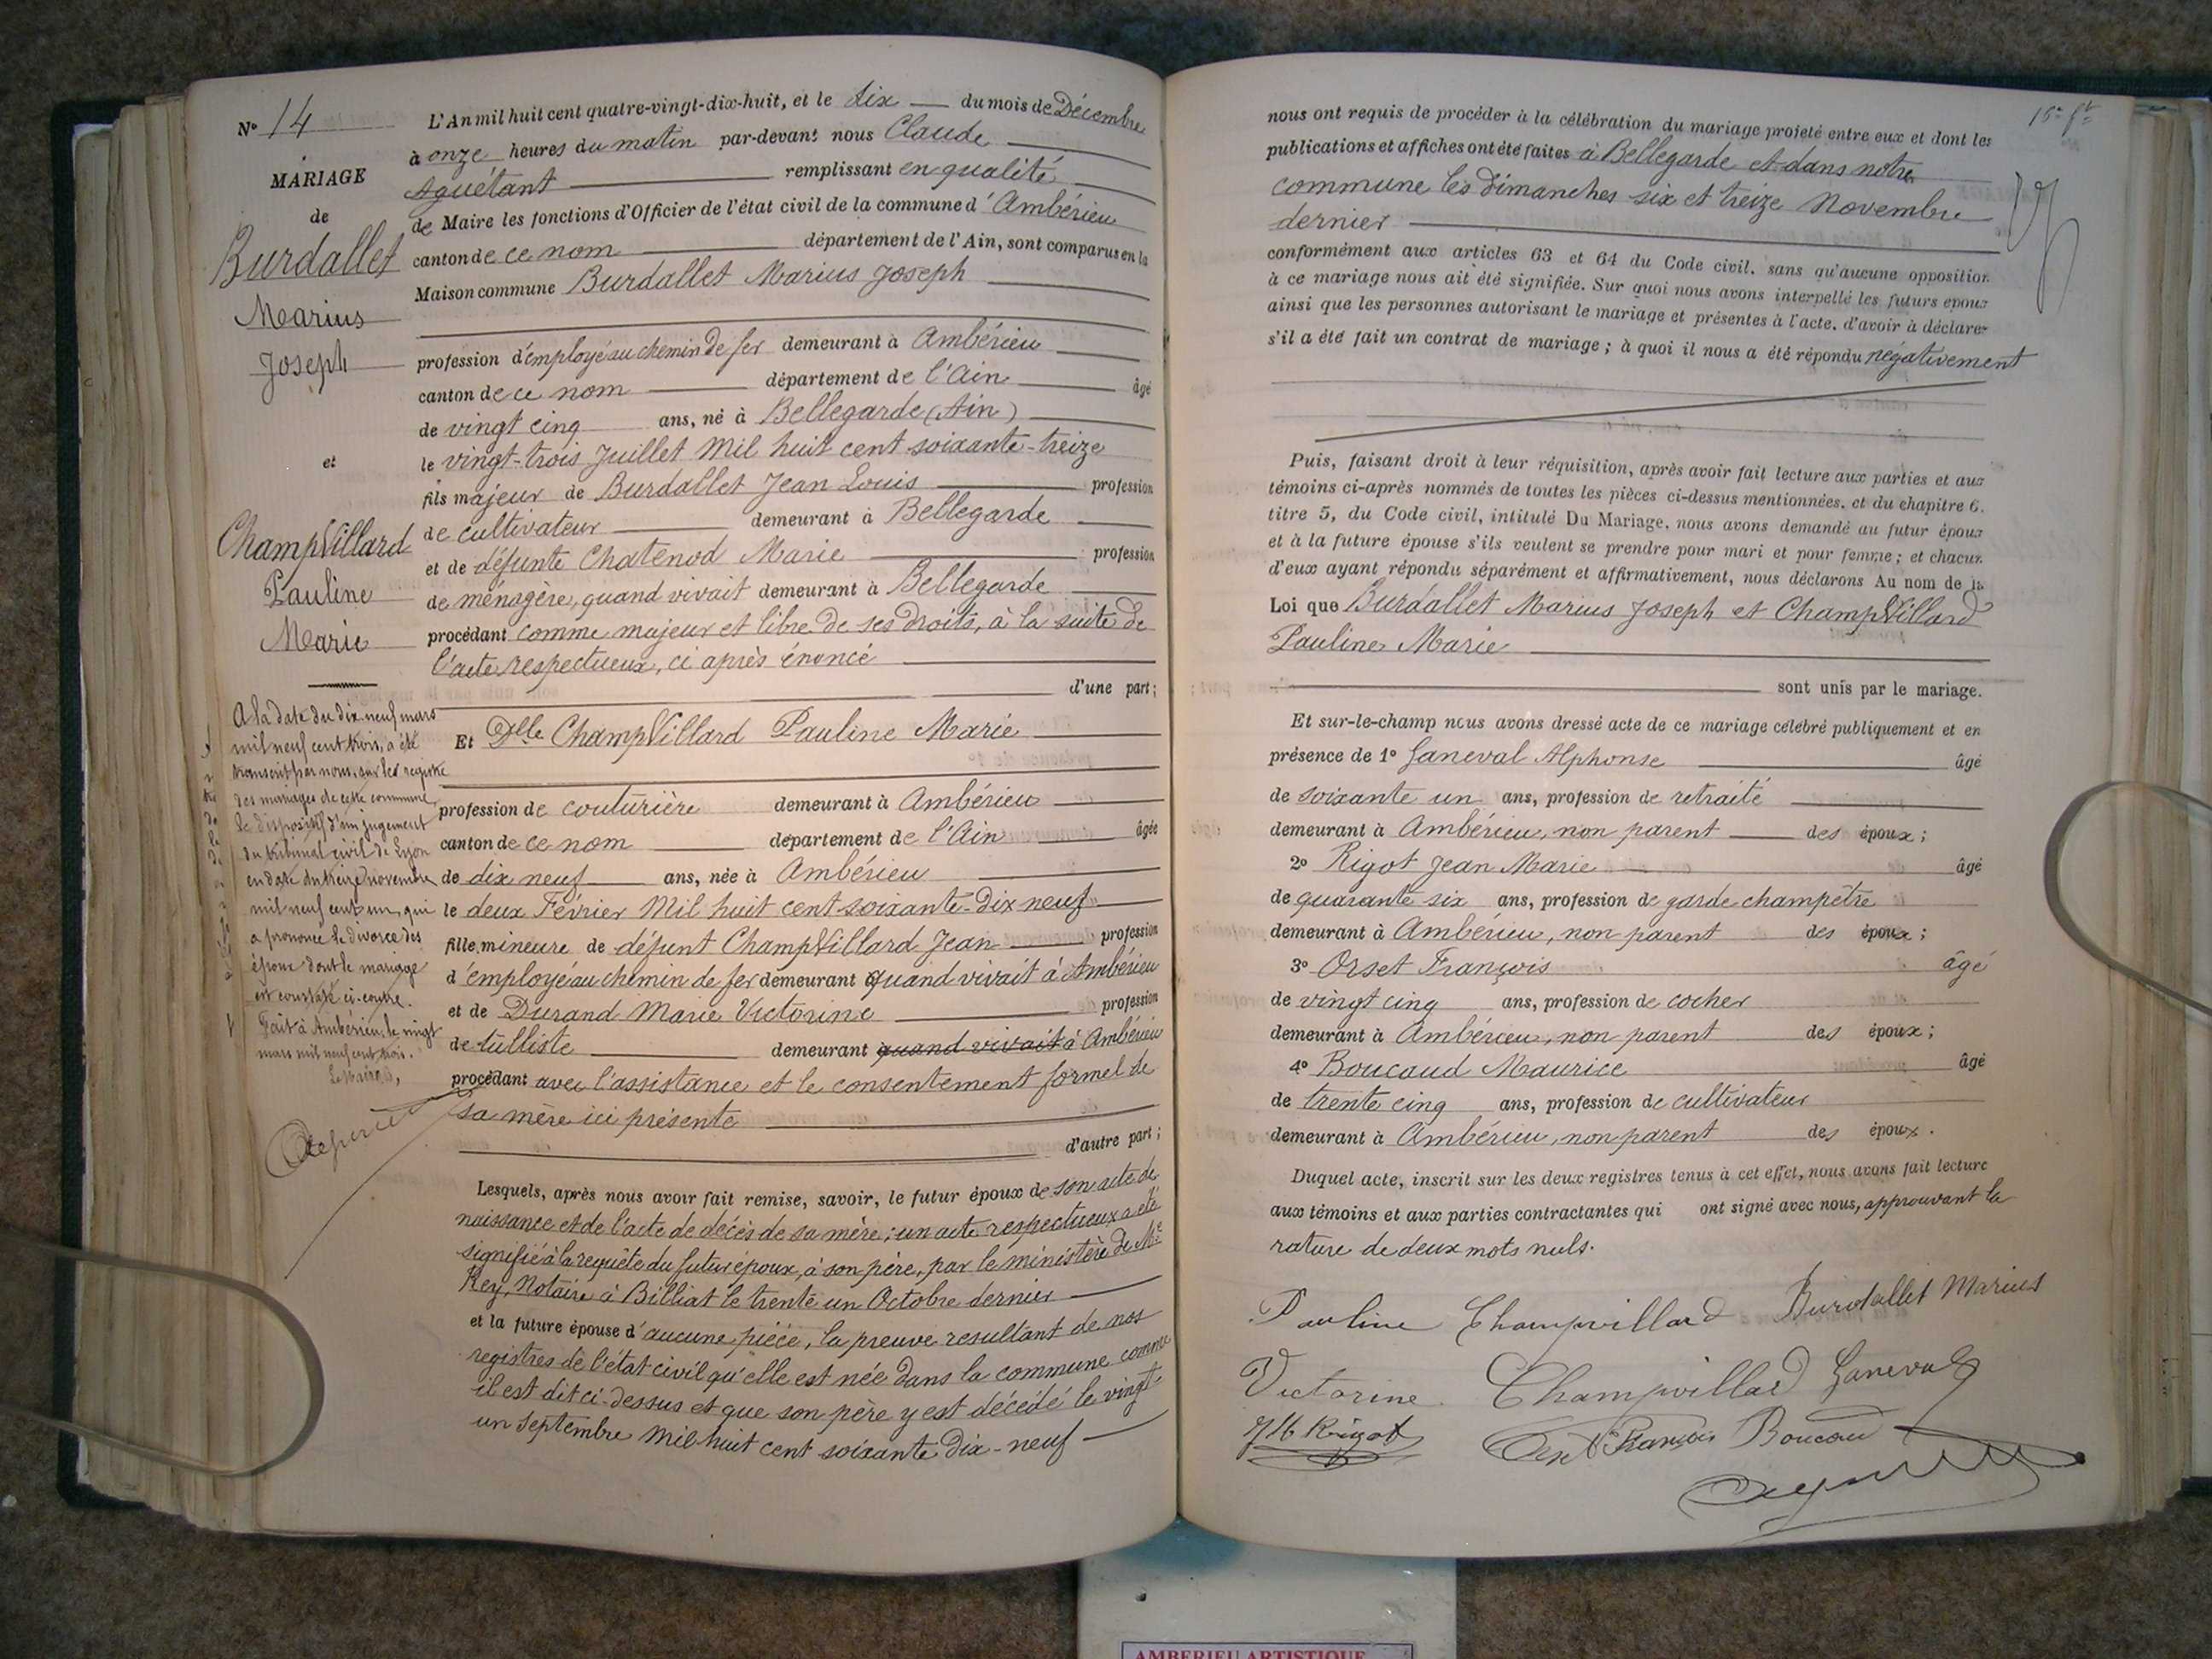 N° 14
MARIAGE
de
Burdallet
Marius
Joseph
et
ChampVillard
Pauline
Marie
A la date du dix neuf mars
mil neuf cent trois, a été
transcrit par nous, sur les registre
des mariages de cette commune,
le dispositif d'un jugement
du tribunal civil de Lyon
en date du treize novembre
mil neuf cent un, qui
a prononcé le divorce des
époux dont le mariage
est constaté ci-contre.
Fait à Ambérieu, le vingt
mars mil neuf cent trois.
Le Maire,
L'An mil huit cent quatre-vingt-dix-huit, et le dix du mois de Décembre
à onze heures du matin par-devant nous Claude
Aguétant remplissant en qualité
de Maire les fonctions d'Officier de l'état civil de la commune d'Ambérieu
canton de ce nom département de l'Ain, sont comparus en la
Maison commune Burdallet Marius Joseph
profession d'employé au chemin de fer demeurant à Ambérieu
canton de ce nom département de l'Ain âgé
de vingt cinq ans, né à Bellegarde (Ain)
le vingt-trois Juillet Mil huit cent soixante-treize
fils majeur de Burdallet Jean Louis profession
de cultivateur demeurant à Bellegarde
et de défunte Chatenod Marie profession
de ménagère, quand vivait demeurant à Bellegarde
procédant comme majeur et libre de ses droits, à la suite de
l'acte respectueux, ci après énoncé
d'une part;
Et Dlle ChampVillard Pauline Marie
profession de couturière demeurant à Ambérieu
canton de ce nom département de l'Ain âgée
de dix neuf ans, née à Ambérieu
le deux Février Mil huit cent soixante-dix neuf
fille mineure de défunt ChampVillard Jean profession
d'employé au chemin de fer demeurant quand vivait à Ambérieu
et de Durand Marie Victorine profession
de tulliste demeurant quand vivait à Ambérieu
procédant avec l'assistance et le consentement formel de
sa mère ici présente
d'autre part;
Lesquels, après nous avoir fait remise, savoir, le futur époux de son acte de
naissance et de l'acte de décès de sa mère; un acte respectueux a été
signifié à la requête du futur époux, à son père, par le ministère de Me
Rey, Notaire à Billiat le trente un Octobre dernier
et la future épouse d'aucune pièce, la preuve resultant de nos
registres de l'état civil qu'elle est née dans la commune comme
il est dit ci-dessus et que son père y est décédé le vingt
un Septembre Mil huit cent soixante Dix-neuf
nous ont requis de procéder à la célébration du mariage projeté entre eux et dont les
publications et affiches ont été faites à Bellegarde et dans notre
commune les dimanches six et treize Novembre
dernier
conformément aux articles 63 et 64 du Code civil, sans qu'aucune opposition
à ce mariage nous ait été signifiée. Sur quoi nous avons interpellé les futurs époux
ainsi que les personnes autorisant le mariage et présentes à l'acte, d'avoir à déclarer
s'il a été fait un contrat de mariage; à quoi il nous a été répondu négativement
Puis, faisant droit à leur réquisition, après avoir fait lecture aux parties et aux
témoins ci-après nommés de toutes les pièces ci-dessus mentionnées, et du chapitre 6,
titre 5, du Code civil, intitulé Du Mariage, nous avons demandé au futur époux
et à la future épouse s'ils veulent se prendre pour mari et pour femme; et chacun
d'eux ayant répondu séparément et affirmativement, nous déclarons Au nom de la
Loi que Burdallet Marius Joseph et ChampVillard
Pauline Marie
sont unis par le mariage.
Et sur-le-champ nous avons dressé acte de ce mariage célébré publiquement et en
présence de 1° Janeval Alphonse âgé
de soixante un ans, profession de retraité
demeurant à Ambérieu, non parent des époux;
2° Rigot Jean Marie âgé
de quarante six ans, profession de garde champêtre
demeurant à Ambérieu, non parent des époux;
3° Orset François âgé
de vingt cinq ans, profession de cocher
demeurant à Ambérieu, non parent des époux;
4° Boucaud Maurice âgé
de trente cinq ans, profession de cultivateur
demeurant à Ambérieu, non parent des époux.
Duquel acte, inscrit sur les deux registres tenus à cet effet, nous avons fait lecture
aux témoins et aux parties contractantes qui ont signé avec nous, approuvant la
rature de deux mots nuls.
Pauline Champvillard Burdallet Marius
Victorine Champvillard Janeval
JM Rigot Orset François Boucau
AMBERIEU ARTISTIQUE